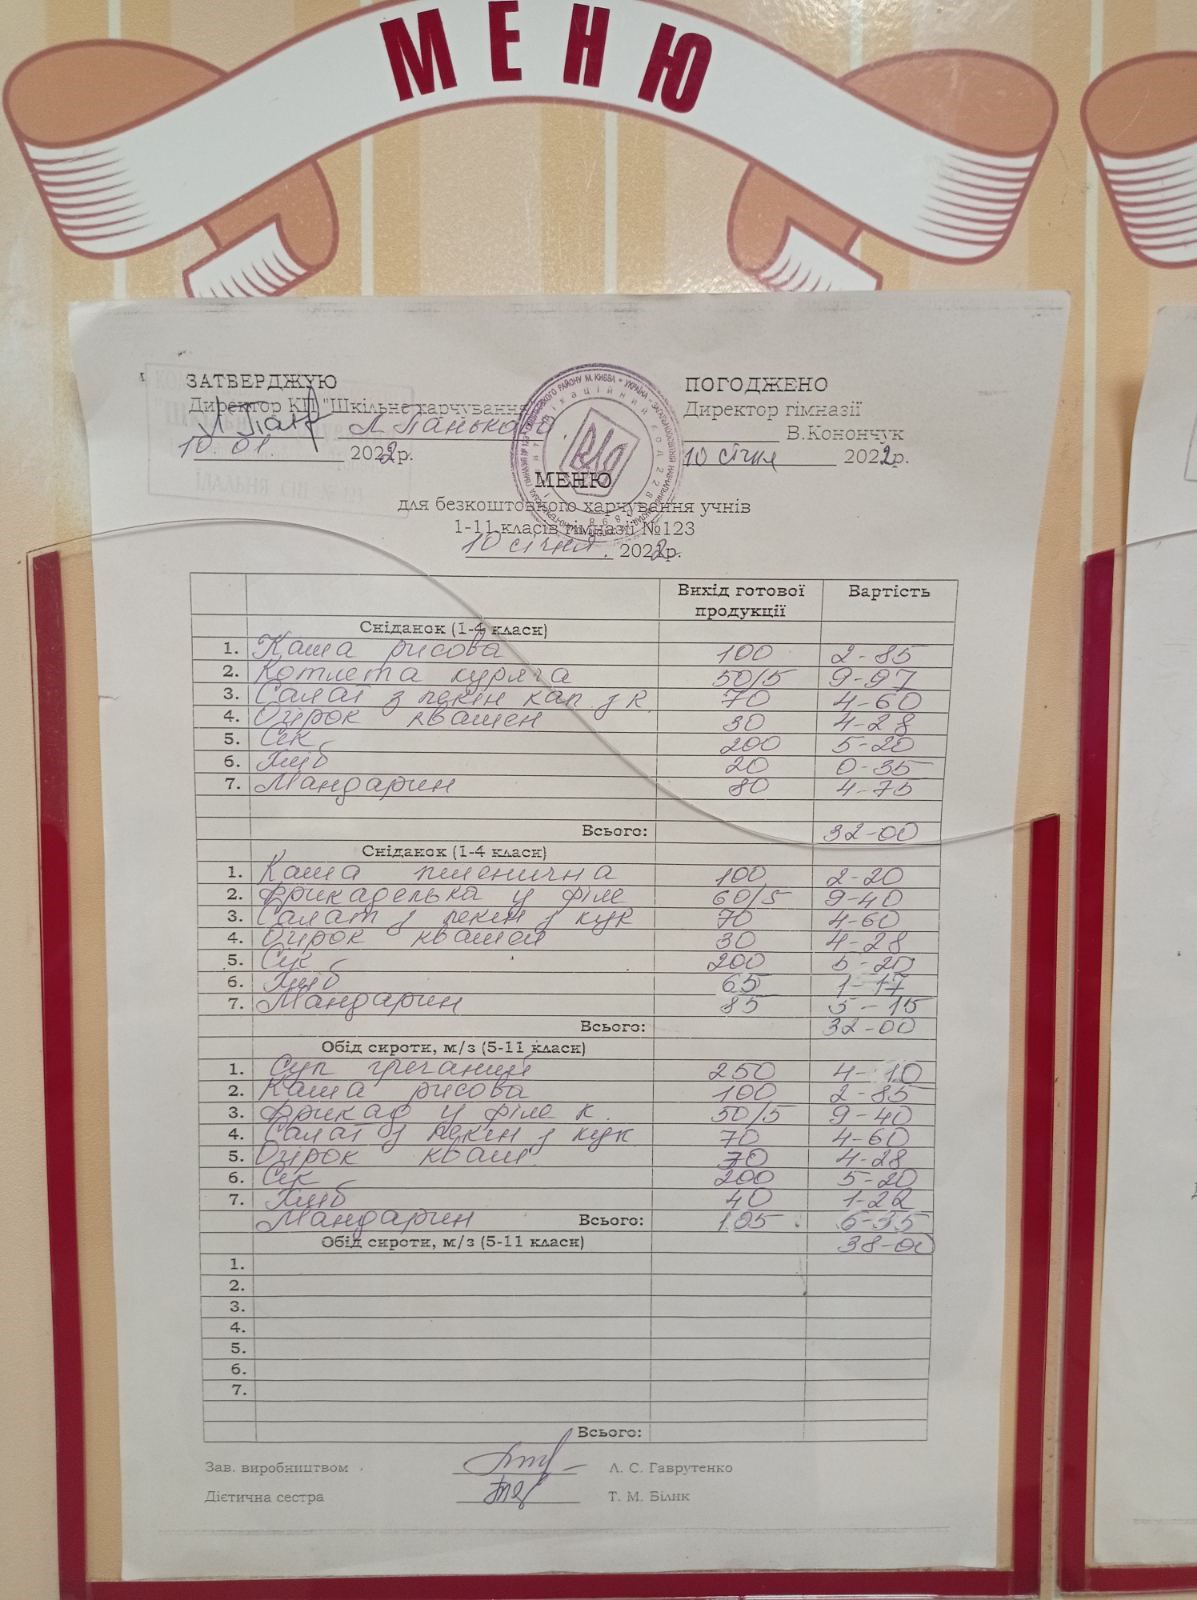 МЕНЮ
ЗАТВЕРДЖУЮ
Директор КП "Шкільне харчування"
Л. Панькова
10.01. 2022р.
ПОГОДЖЕНО
Директор гімназії
В.Конончук
10 січня 2022р.
МЕНЮ
для безкоштовного харчування учнів
1-11 класів гімназії №123
10 січня. 2022р.
Вихід готової продукції Вартість
Сніданок (1-4 класи)
1. Каша рисова 100 2-85
2. Котлета куряча 50/5 9-97
3. Салат з пекін кап. з к. 70 4-60
4. Огірок квашен 30 4-28
5. Сік 200 5-20
6. Хліб 20 0-35
7. Мандарин 80 4-75
Всього: 32-00
Сніданок (1-4 класи)
1. Каша пшенична 100 2-20
2. Фрикаделька у філе 60/5 9-40
3. Салат з пекін з кук 70 4-60
4. Огірок квашен 30 4-28
5. Сік 200 5-20
6. Хліб 65 1-17
7. Мандарин 85 5-15
Всього: 32-00
Обід сироти, м/з (5-11 класи)
1. Суп гречаний 250 4-10
2. Каша рисова 100 2-85
3. Фрикад у філе к. 50/5 9-40
4. Салат з пекін з кук 70 4-60
5. Огірок кваш 30 4-28
6. Сік 200 5-20
7. Хліб 40 1-22
Мандарин Всього: 105 6-35
Обід сироти, м/з (5-11 класи) 38-00
1.
2.
3.
4.
5.
6.
7.
Всього:
Зав. виробництвом Л. С. Гаврутенко
Дієтична сестра Т. М. Білик